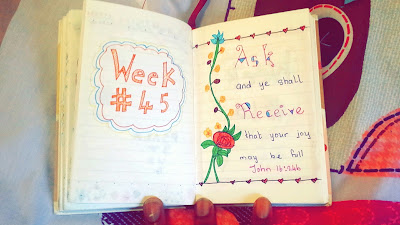 Week
#45
Ask
and ye shall
Receive
that your joy
may be full
John 16:24b